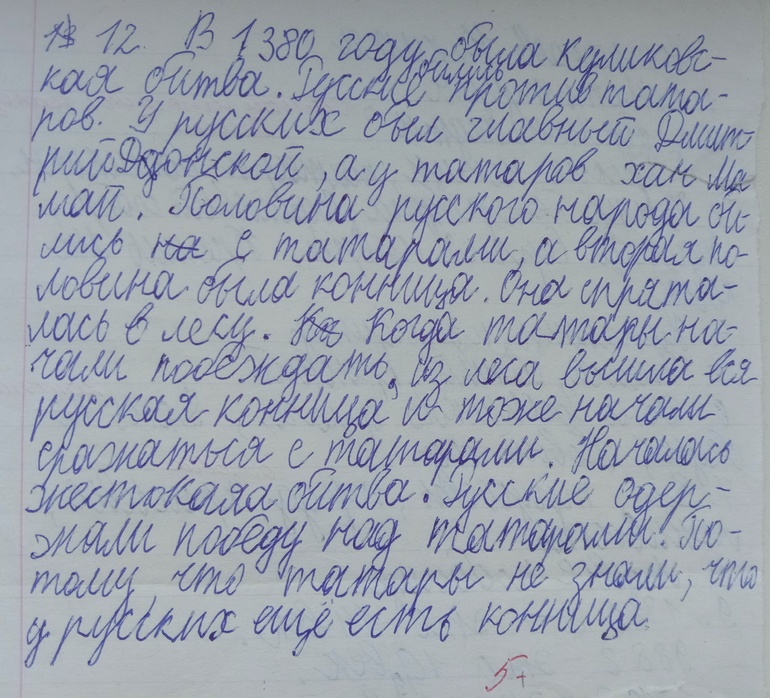 12. В 1380 году была Куликовс-
кая битва. Русские бились против тата-
ров. У русских был главный Дмит-
рий Донской, а у татаров хан Ма
май. Половина русского народа би-
лись с татарами, а вторая по-
ловина была конница. Она спрята-
лась в лесу. Когда татары на-
чали побеждать, из леса вышла вся
русская конница и тоже начали
сражаться с татарами. Началась
жестокая битва. Русские одер-
жали победу над татарами. По-
тому, что татары не знали, что
у русских ещё есть конница.
5+